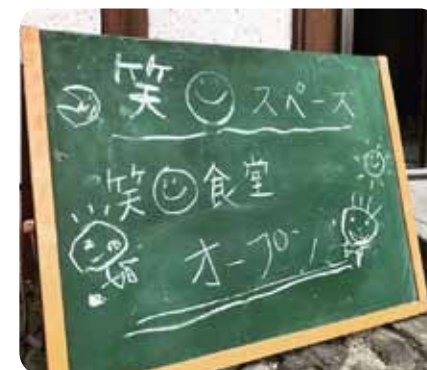 笑スペース
笑食堂
オープン